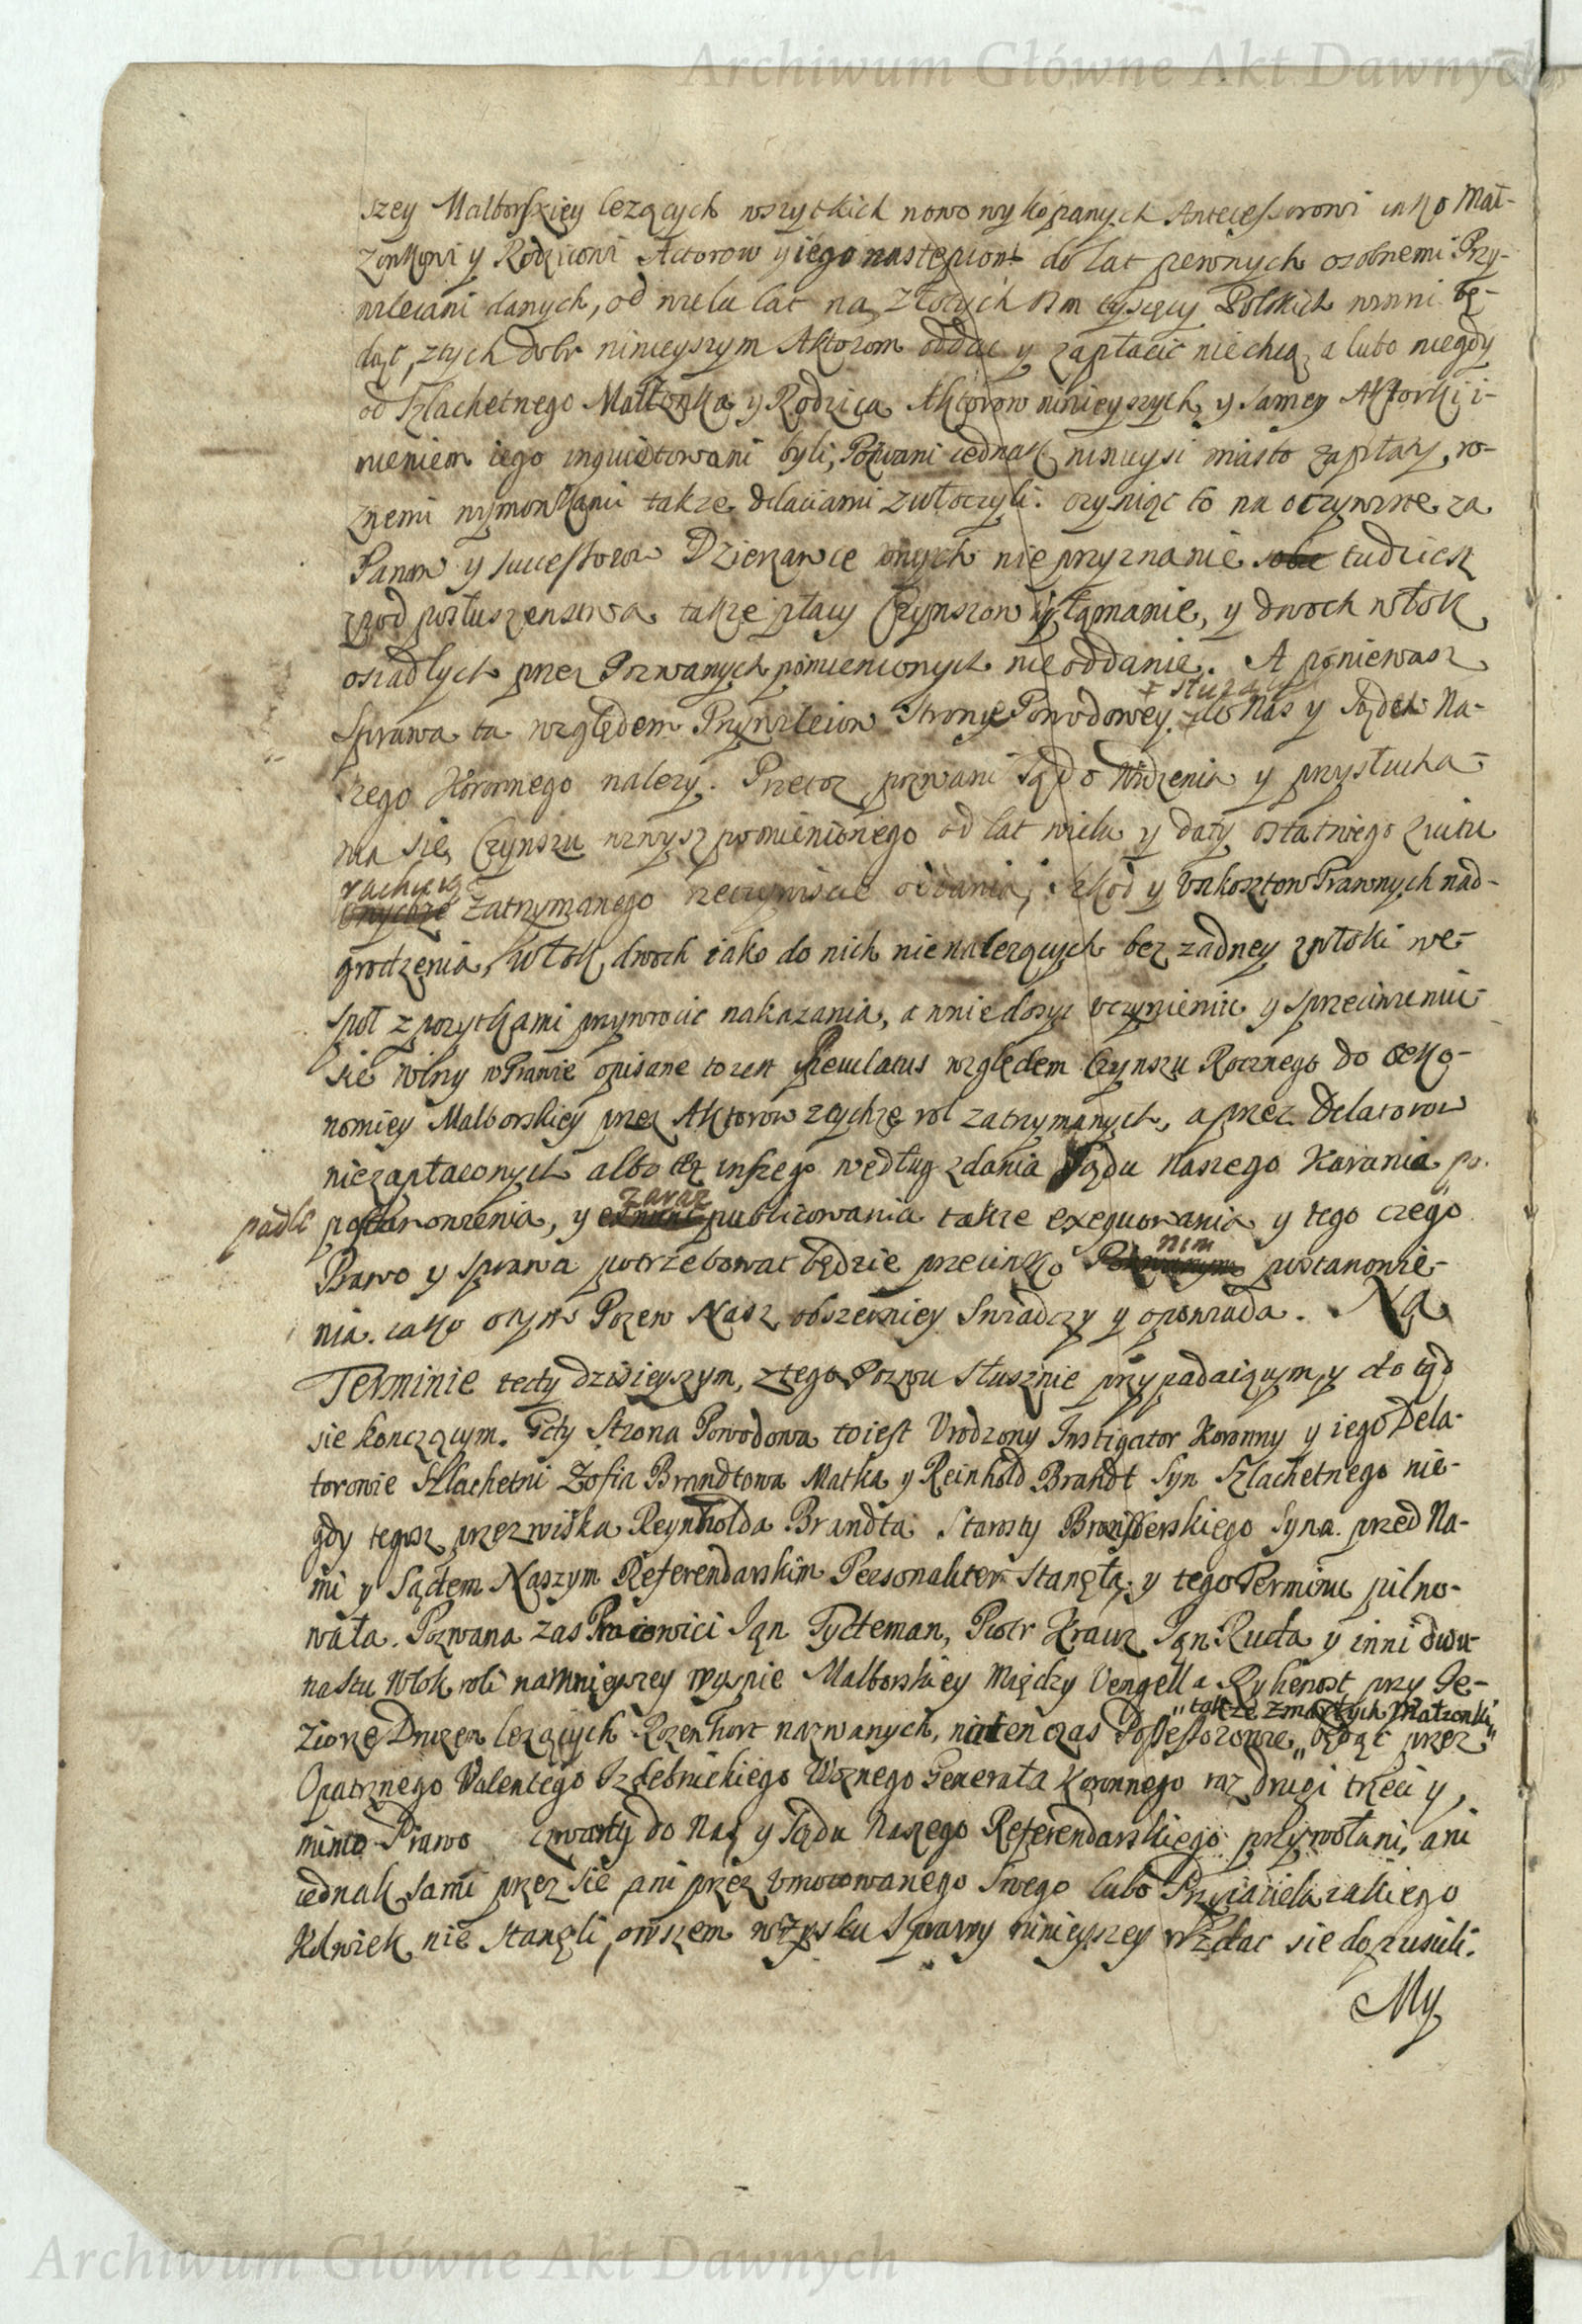 Archiwum Główne Akt Dawnych
szey Malborskiey lezących wszytkich nowo wykopanych Antecessorowi iako Mał-
zonkowi y Rodzicowi Actorow y iego następcom do lat pewnych osobnemi Przy-
wileiami danych, od wielu lat na złotych osm tysięcy Polskich winni bę-
dąc, z tych dobr ninieyszym Aktorom oddac y zapłacic niechcą, a lubo niegdy
od Szlachetnego Małzonka y Rodzica Aktorow ninieyszych y samey Aktorki i-
mieniem iego inquietowani byli, Pozwani iednak ninieysi miasto zapłaty, ro-
znemi wymowkami takze dilaciami zwłoczyli. czyniąc to na oczywiste za
Panow y successorow Dzierzawce onych nie przyznanie sobie tudziesz
zpod posłuszenstwa takze płacy Czynszow wyłamanie, y dwoch włok
osiadłych przez Pozwanych pomienionych nie oddanie. A poniewasz
+ słuząc
Sprawa ta względem Przywileiow Strony Powodowey + do Nas y Sądu Na-
szego Koronnego nalezy. Przetoz pozwani są do Widzenia y przysłucha-
nia się Czynszu wzwysz pomienionego od lat wielu y daty ostatniego kwitu
rachuiąc
onychze zatrzymanego rzeczywiscie oddania, szkod y Vnkosztow Prawnych nad-
grodzenia, włok dwoch iako do nich nienalezących bez zadney zwłoki we-
społ z pozytkami przywrocic nakazania, a w niedosyc vczynieniu y sprzeciwieniu
się winy w Prawie opisane to iest Peculatus względem Czynszu Rocznego do Oeko-
nomiey Malborskiey przez Aktorow z tychze rol zatrzymanych, a przez Delatorow
niezapłaconych albo tez inszego według zdania Sądu Naszego Karania po-
zaraz
padłe postanowienia, y publicowania takze exequowania y tego czego
nim
Prawo y Sprawa potrzebowac będzie przeciwko Pozwanym postanowie-
nia. iako o tym Pozew Nasz obszerniey swiadczy y opowiada. Na
Terminie tedy dzisieyszym, z tego Pozwu słusznie przypadaiącym y do tąd
się konczącym. Gdy Strona Powodowa to iest Vrodzony Instigator Koronny y iego Dela-
torowie Szlachetni Zofia Brandtowa Matka y Reinhold Brandt Syn Szlachetnego nie-
gdy tegosz przezwiska Reynholda Brandta Starosty Syna. przed Na-
mi y Sądem Naszym Referendarskim Personaliter stanęła y tego Terminu pilno-
wała. Pozwana zas Pracowici Jan Tydteman, Piotr Krauz Jan Ruda y inni dwu-
nastu włok roli na mnieyszey wyspie Malborskiey między Vengell a Rykenort przy Je-
" takze zmarłych Małzonki
ziorze Druzen lezących Rozenhort nazwanych, na ten czas Possessorowie " będąc przez "
Opatrznego Valentego Izdebnickiego Woznego Generała Koronnego raz drugi trzeci y
mimo Prawo czwarty do Nas y Sądu Naszego Referendarskiego przywołani, ani
iednak sami przez się ani przez Vmocowanego swego lubo Przyiaciela iakiego
Kolwiek nie stanęli, owszem w Zysku Sprawy ninieyszey wzdac się dopuscili.
My
Archiwum Główne Akt Dawnych